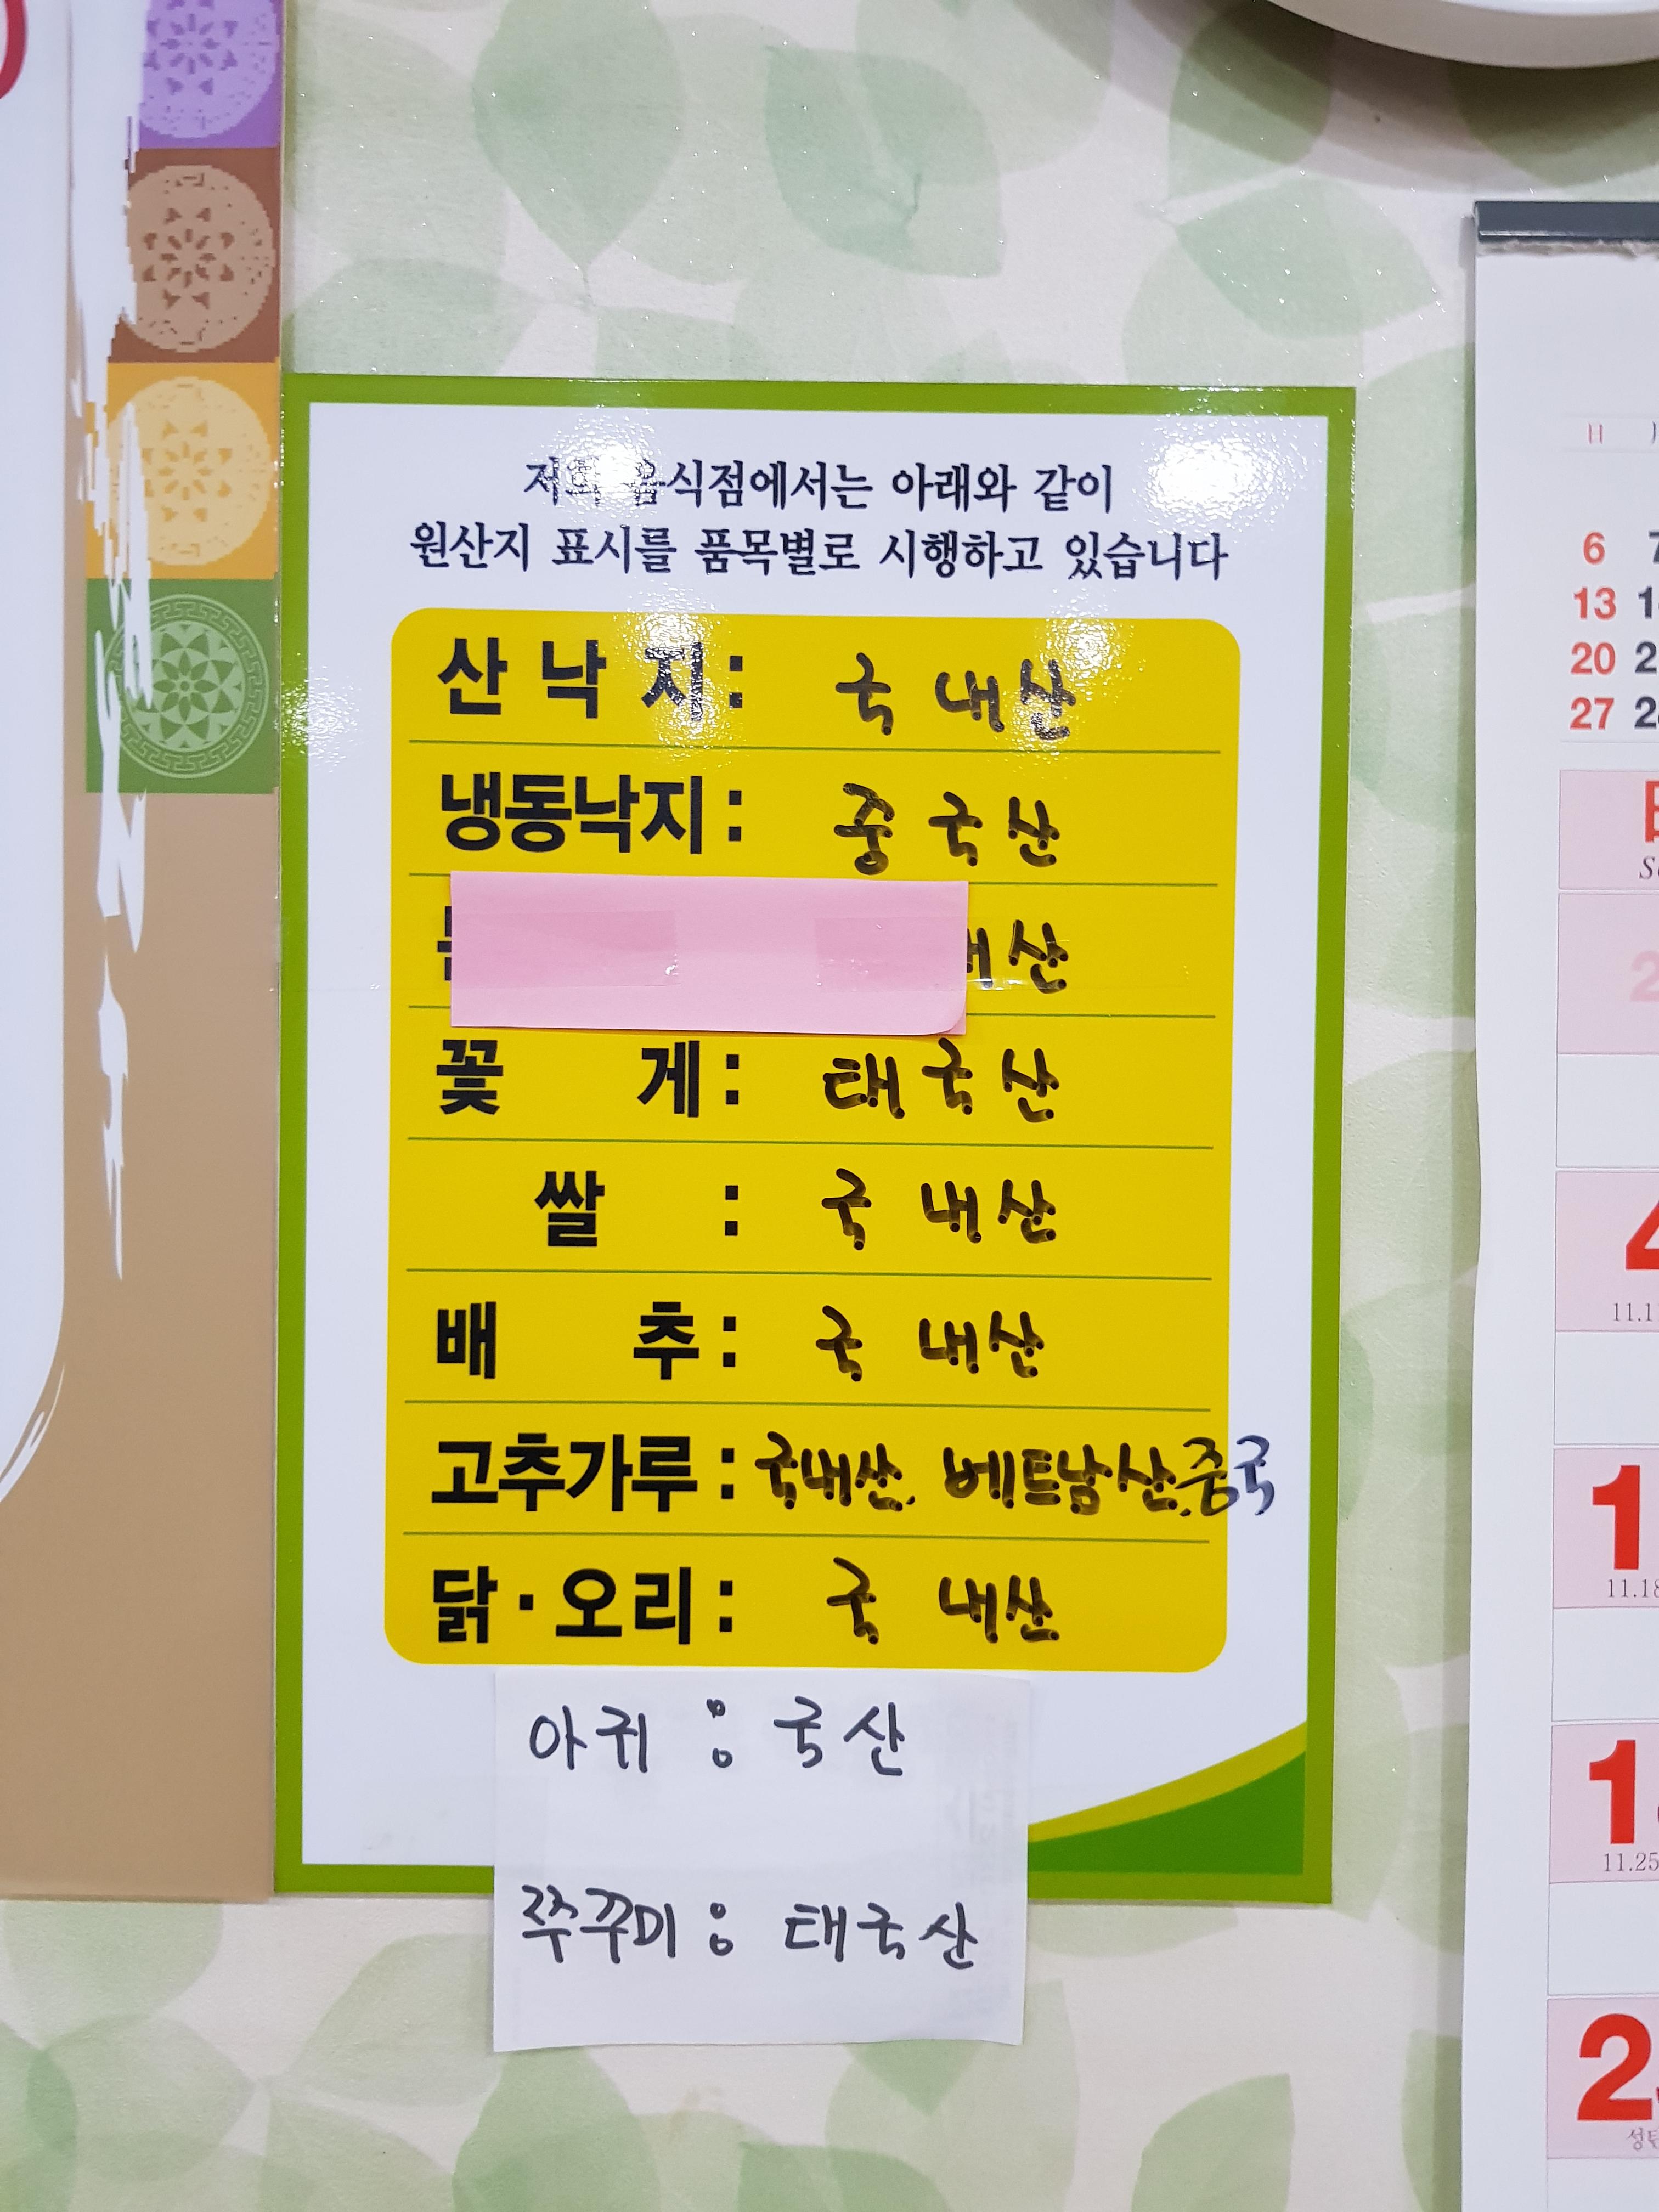 저희 음식점에서는 아래와 같이
원산지 표시를 품목별로 시행하고 있습니다
산 낙 지 : 국 내 산
냉동낙지 : 중 국 산
산
꽃 게 : 태 국 산
쌀 : 국 내 산
배 추 : 국 내 산
고추가루 : 국내산, 베트남산,중국
닭·오리 : 국 내산
아귀 : 국산
쭈꾸미 : 태국산
6 7
13
20
27
4
11.1
11.18
11.25